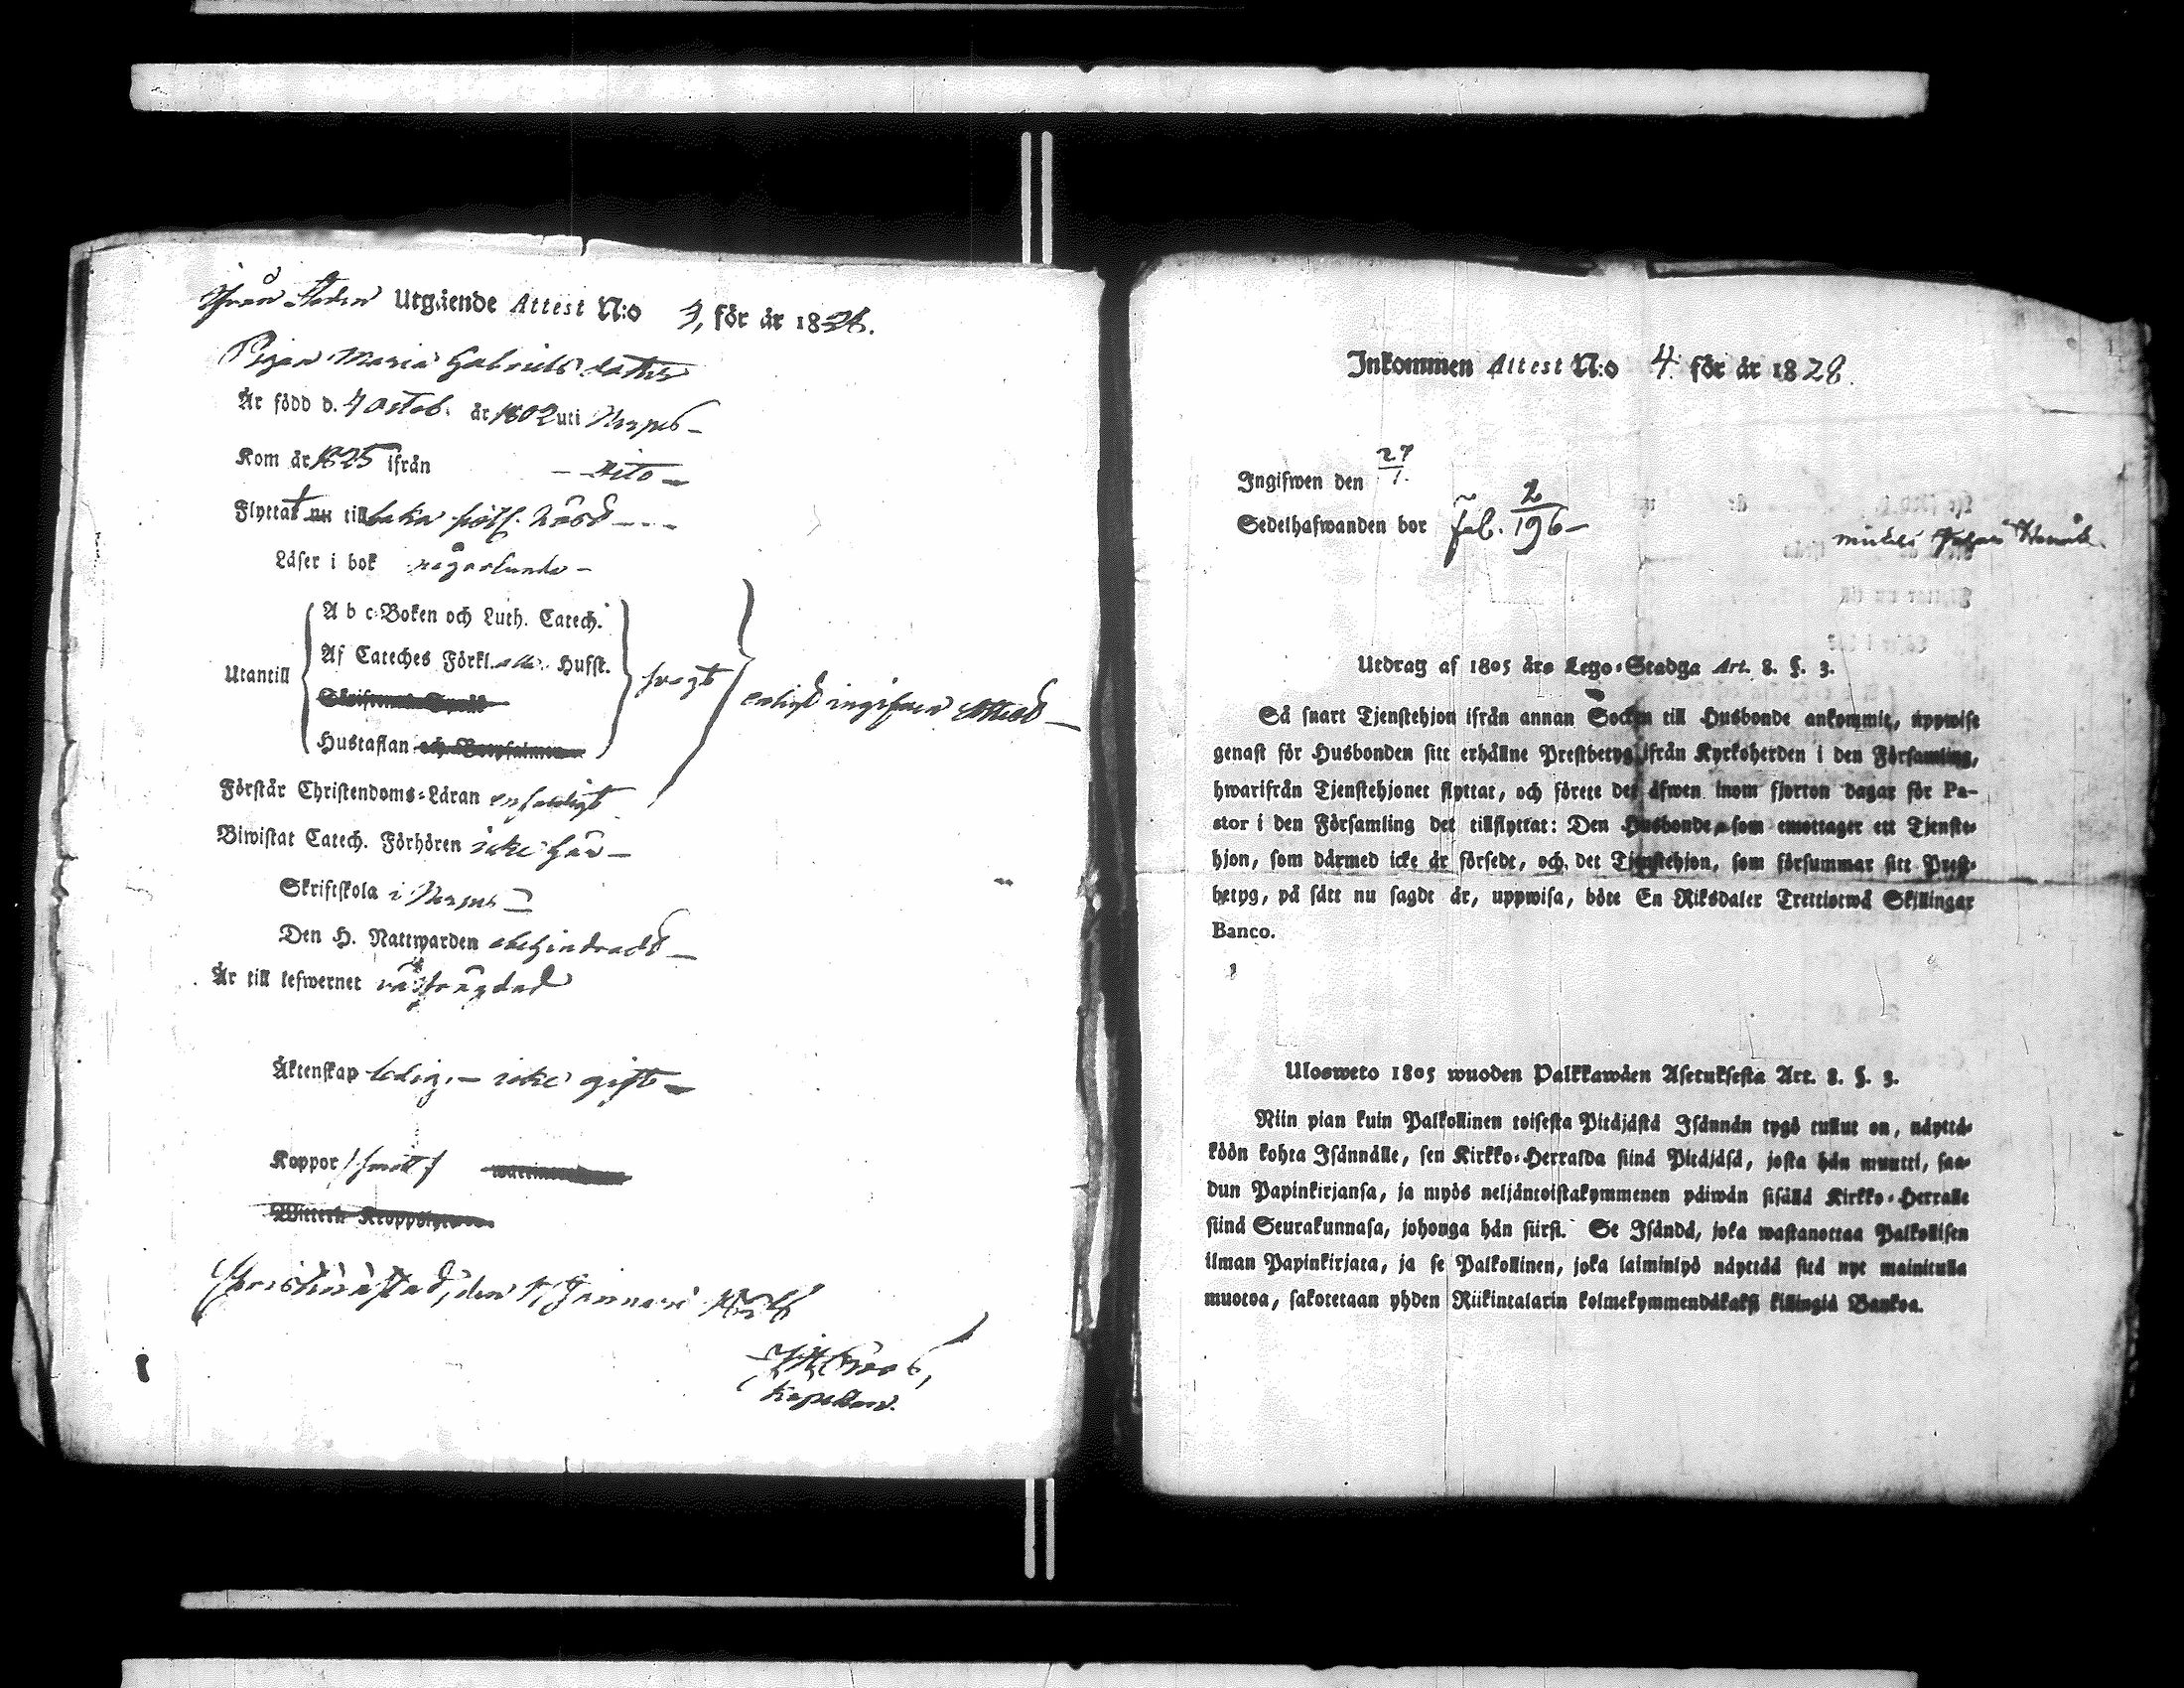 Ifrån Staden Utgående Attest N:o 3, för år 1828.
Pigan Maria Gabriels dotter
Är född d. 4 Octob. år 1802 uti Nerpes –
Kom år 1825 ifrån – dito –
Flyttat nu tillbaka sistl. höst – – –
Läser i bok någorlunda –
Utantill
A b c-Boken och Luth. Catech.
Af Cateches Förkl. Husst.
Hustaflan
svagt
enligt ingifven Attest –
Förstår Christendoms-Läran enfaldigt
Biwistat Catech. Förhören icke här –
Skriftskola i Nerpes –
Den H. Nattwarden obehindradt –
Är till lefwernet välfrägdad
Äktenskap ledig, – icke gift –
Koppor
Christinæstad, den Januari 1828
Kapellan.
Inkommen Attest N:o 4. för år 1828.
Ingifwen den 27/1.
Sedelhafwanden bor fol. 2/196 –
Utdrag af 1805 års Lego-Stadga Art. 8. §. 3.
Så snart Tjenstehjon ifrån annan Socken till Husbonde ankommit, uppwise
genast för Husbonden sitt erhållne Prestbetyg ifrån Kyrkoherden i den Församling,
hwarifrån Tjenstehjonet flyttat, och förete det äfwen inom fjorton dagar för Pa-
stor i den Församling det tillflyttat: Den Husbonde, som emottager ett Tjenste-
hjon, som därmed icke är försedt, och det Tjenstehjon, som försummar sitt Prest-
betyg, på sätt nu sagdt är, uppwisa, böte En Riksdaler Trettiotwå Skillingar
Banco.
Ulosweto 1805 wuoden Palkkawäen Asetuksesta Art. 8. §. 3.
Niin pian kuin Palkollinen toisesta Pitäjästä Isännän tygö tullut on, näyttä-
köön kohta Isännälle, sen Kirkko-Herralda siinä Pitäjäsä, josta hän muutti, saa-
dun Papinkirjansa, ja myös neljäntoistakymmenen päiwän sisällä Kirkko-Herralle
siinä Seurakunnasa, johonga hän siirsi. Se Isändä, joka wastanottaa Palkollisen
ilman Papinkirjata, ja se Palkollinen, joka laiminlyö näyttää sitä nyt mainitulla
muotoa, sakotetaan yhden Riikintalarin kolmekymmendäkaksi killingiä Bankoa.